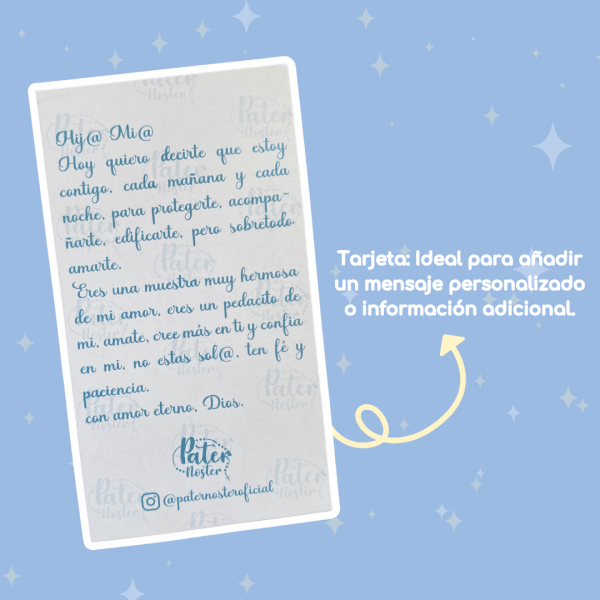 Hij@ Mi@
Hoy quiero decirte que estoy
contigo, cada mañana y cada
noche, para protegerte, acompa-
ñarte, edificarte, pero sobretodo
amarte.
Eres una muestra muy hermosa
de mi amor, eres un pedacito de
mi, amate, cree más en ti y confia
en mi, no estas sol@, ten fé y
paciencia.
con amor eterno, Dios.
Pater
Noster
@paternosteroficial
Tarjeta: Ideal para añadir
un mensaje personalizado
o información adicional.